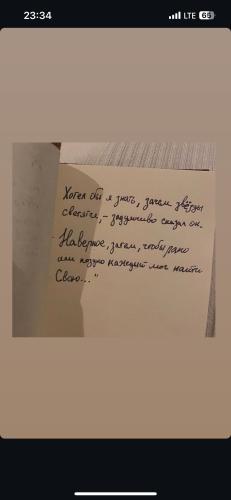 23:34
LTE 65
Хотел бы я знать, зачем звёзды
светятся, - задумчиво сказал он.
- Наверное, затем, чтобы рано
или поздно каждый мог найти
Свою..."